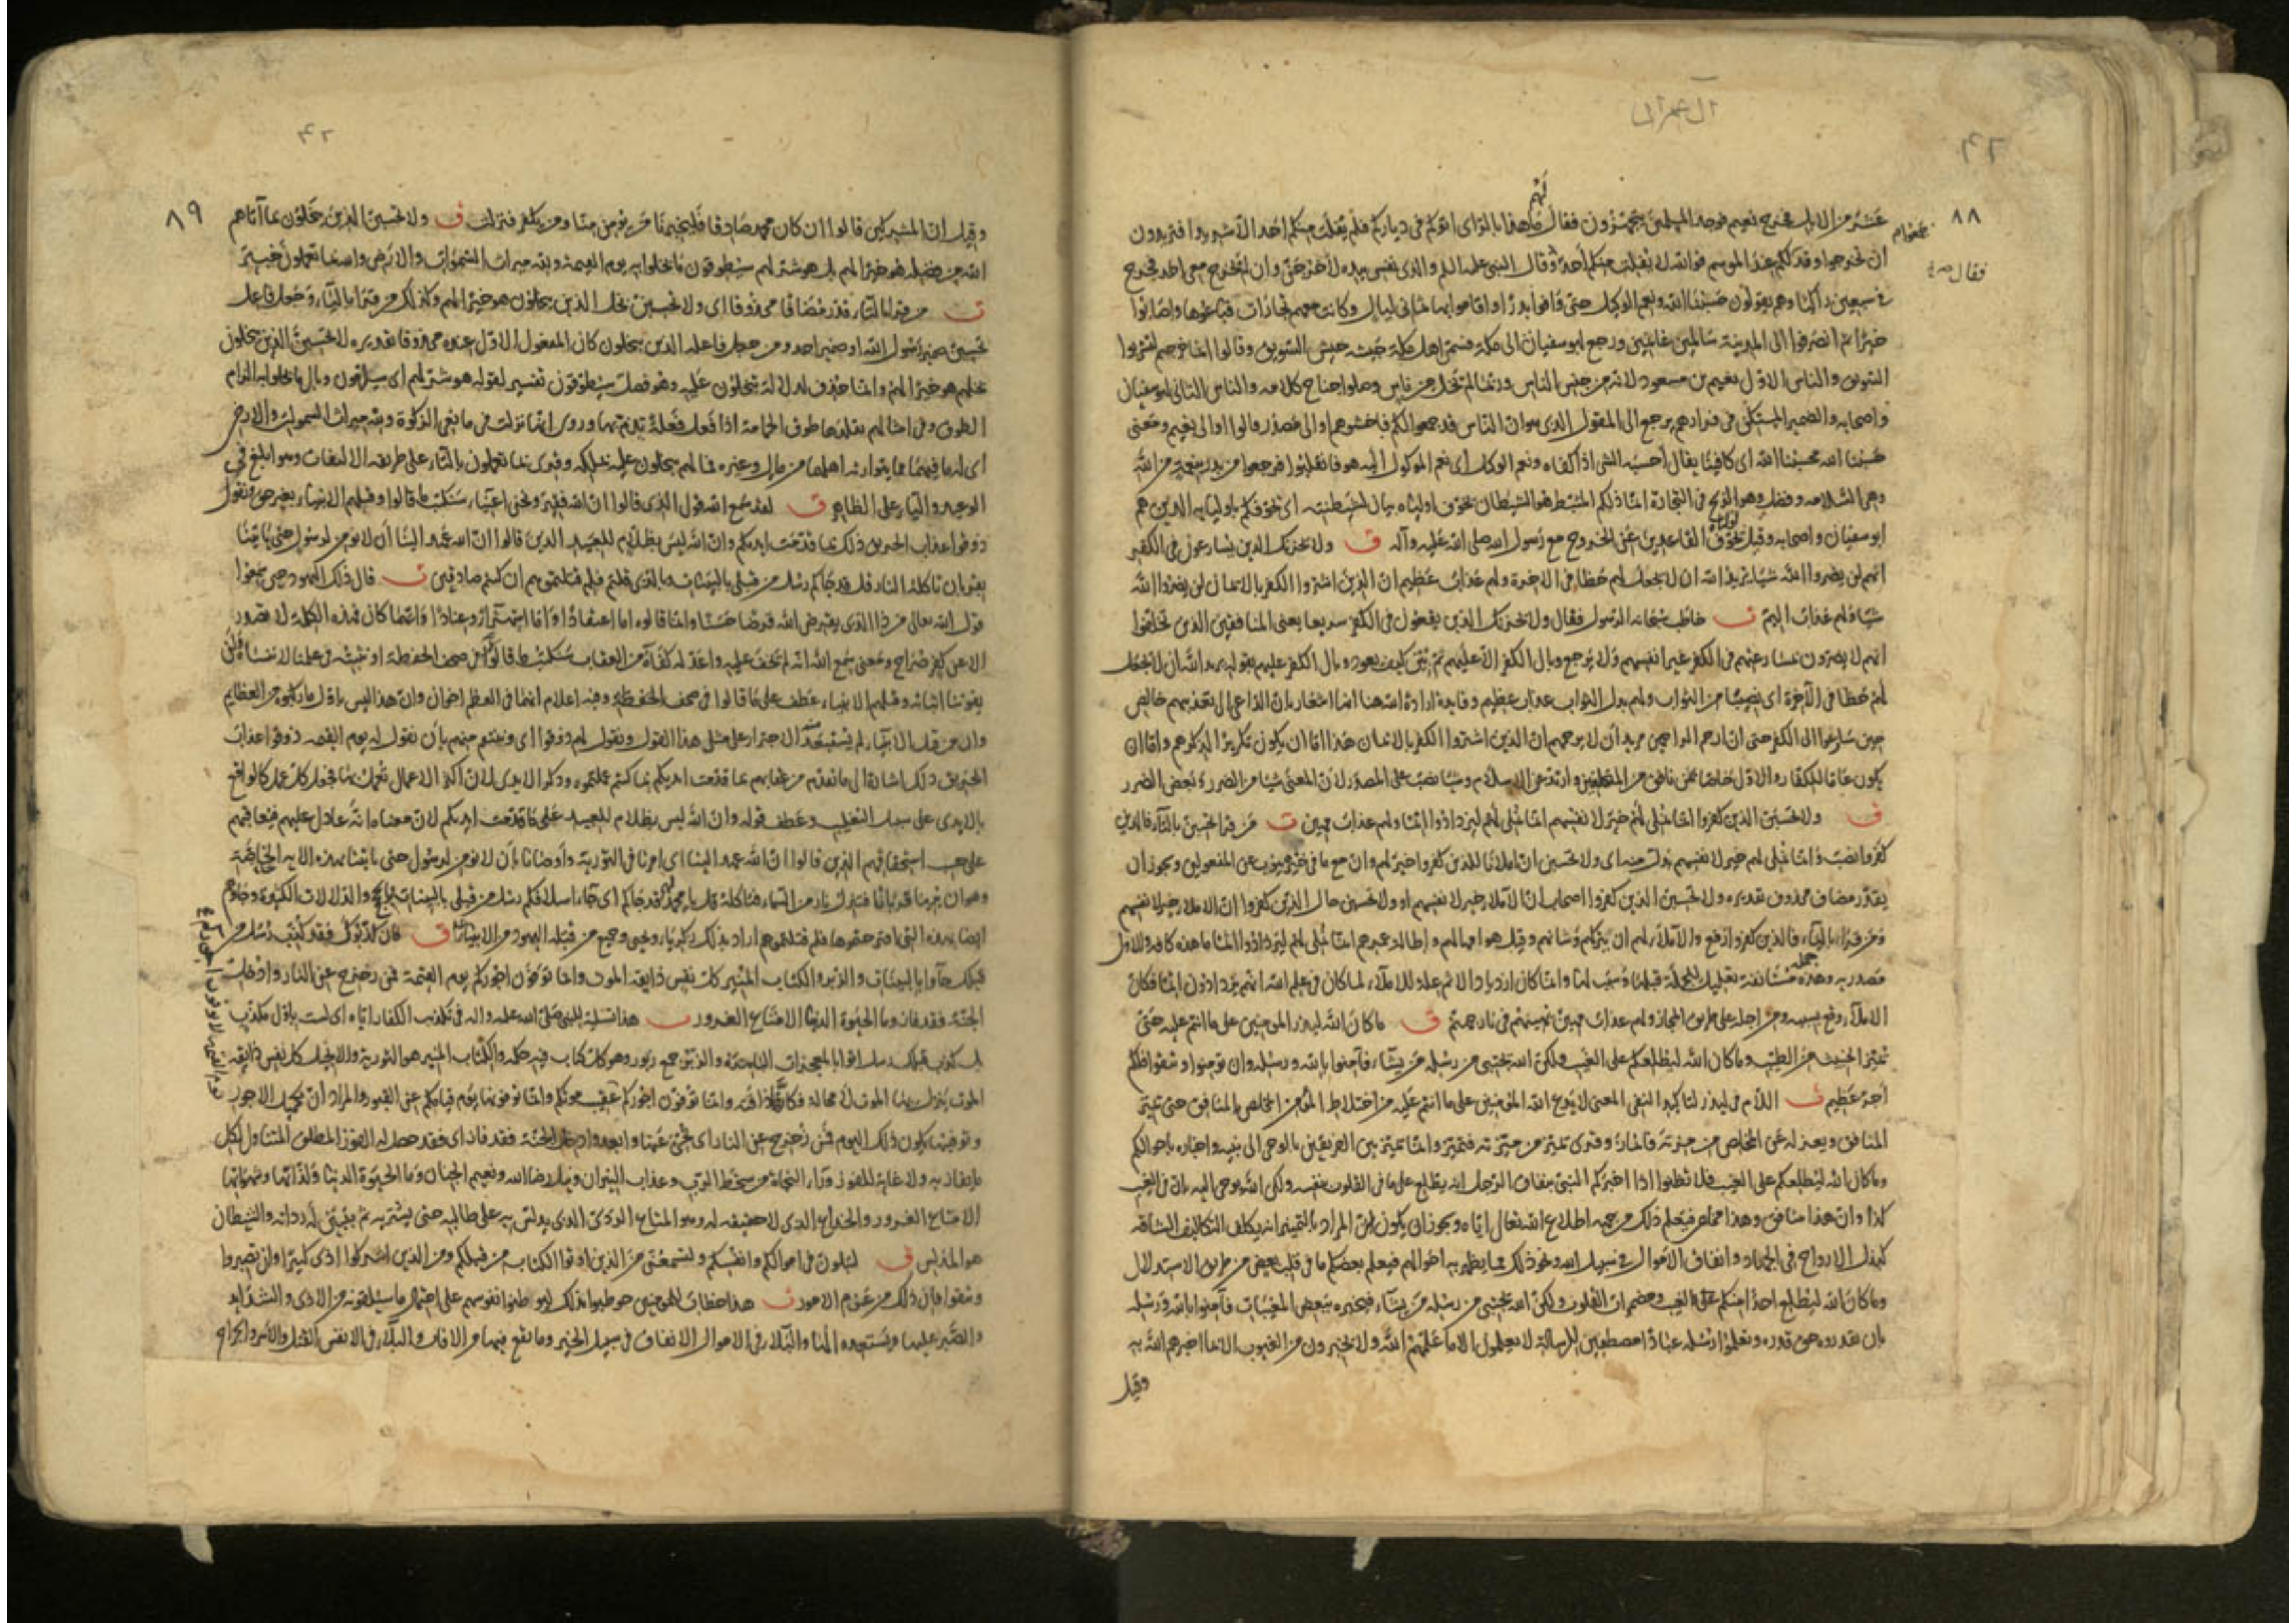 آل عمران
٤٢
٨٨
لهم
عشر من الابل فخرج نعيم فوجد المسلمين يتجهزون فقال ما هذا بالراى اتوكم فى دياركم فلم يفلت منكم احد الا شريد افتريدون
ان تخرجوا وقد لكم عند الموسم فوالله لا يفلت منكم أحد وقال النبى عليه السلم والذى نفسى بيده لأخرجن وان لم يخرج معى احد فخرج
فقال
فى سبعين راكبا وهم يقولون حسبنا الله ونعم الوكيل حتى وافوا بدرا واقاموا بها ثمانى ليال وكانت معهم تجارات فباعوها واصابوا
خيرا ثم انصرفوا الى المدينة سالمين غانمين ورجع ابو سفيان الى مكة فسمى اهل مكة جيشه جيش السويق وقالوا انما خرجتم لتشربوا
السويق والناس الاول نعيم بن مسعود لانه من جنس الناس والناس الثانى ابو سفيان
واصحابه والضمير المستكن فى فزادهم يرجع الى المقول الذى هو ان الناس قد جمعوا لكم فاخشوهم او الى مصدر قالوا او الى نعيم ومعنى
حسبنا الله محسبنا الله اى كافينا يقال أحسبه الشى اذا كفاه ونعم الوكيل اى نعم الموكول اليه هو فانقلبوا فرجعوا من بدر بنعمة من الله
وهى السلامه وفضل وهو الربح فى التجارة انما ذلكم المثبط هو الشيطان يخوف اولياه بيان لشيطنته اى يخوفكم باوليايه الذين هم
ابو سفيان واصحابه وقيل يخوف القاعدين عن الخروج مع رسول الله صلى الله عليه وآله ق ولا يحزنك الذين يسارعون فى الكفر
انهم لن يضروا الله شيا يريد الله ان لا يجعل لهم حظا فى الاخرة ولهم عذاب عظيم ان الذين اشتروا الكفر بالايمان لن يضروا الله
شيا ولهم عذاب اليم ت خاطب سبحانه الرسول فقال ولا يحزنك الذين يقعون فى الكفر سريعا يعنى المنافقين الذين تخلفوا
انهم لا يضرون بمسارعتهم فى الكفر غير انفسهم ولا يرجع وبال الكفر الا عليهم ثم بين كيف يعود وبال الكفر عليهم بقوله يريد الله ان لا يجعل
لهم حظا فى الآخرة اى نصيبا من الثواب ولهم بدل الثواب عذاب عظيم وفايدة ارادة الله هنا انها اشعار بان الداعى الى تعذيبهم خالص
حين سارعوا الى الكفر حتى ان ارحم الراحمين يريد أن لا يرحمهم ان الذين اشتروا الكفر بالايمان هذا اما ان يكون تكريرا لذكرهم واما ان
يكون عاما للكفار والاول خاصا بمن نافق من المتخلفين وارتد عن الاسلام وشيا نصب على المصدر لان المعنى شيا من الضرر وبعض الضرر
ق ولا تحسبن الذين كفروا انما نملى لهم خير لانفسهم انما نملى لهم ليزدادوا اثما ولهم عذاب مهين ت من قرا تحسبن بالتآء فالذين
كفروا نصب وانما نملى لهم خير لانفسهم بدل منه اى ولا تحسبن ان املانا للذين كفروا خير لهم وان مع ما فى حيزه ينوب عن المفعولين ويجوز ان
يقدر مضاف محذوف تقديره ولا تحسبن الذين كفروا اصحاب ان الاملاء خير لانفسهم او ولا تحسبن حال الذين كفروا ان الاملا خير لانفسهم
ومن قرا بالياء فالذين كفروا رفع والاملاء لهم ان يتركهم وشانهم وقيل هو امهالهم واطالة عمرهم انما نملى لهم ليزدادوا اثما ما هذه كافة والاول
مصدريه وهذه جملة مستانفة تعليل للجملة قبلها وانما كان ازدياد الاثم علة للاملاء لما كان فى علم الله انهم يزدادون اثما فكان
الاملاء وقع بسببه ومن اجله على طريق المجاز ولهم عذاب مهين يهينهم فى نار جهنم ق ما كان الله ليذر المومنين على ما انتم عليه حتى
يميز الخبيث من الطيب وما كان الله ليطلعكم على الغيب ولكن الله يجتبى من رسله من يشاء فآمنوا بالله ورسله وان تومنوا وتتقوا فلكم
اجر عظيم ت اللام فى ليذر لتاكيد النفى المعنى لا يدع الله المومنين على ما انتم عليه من اختلاط المومن المخلص بالمنافق حتى يميز
المنافق ويعزله عن المخلص وقرى يميز من ميزته فتميز وانما يميز بين الفريقين بالوحى الى نبيه واخباره باحوالكم
وما كان الله ليطلعكم على الغيب فلا تظنوا اذا اخبركم النبى بنفاق الرجل انه يطلع على ما فى القلوب بنفسه ولكن الله يوحى اليه بان فى الغيب
كذا وان هذا منافق وهذا مخلص فيعلم ذلك من جهة اطلاع الله تعالى اياه ويجوز ان يكون المراد بالتمييز انه يكلف التكاليف الشاقه
كبذل الارواح فى الجهاد وانفاق الاموال فى سبيل الله ونحو ذلك مما يظهر به احوالهم فيعلم بعضكم ما فى قلب بعض من طريق الاستدلال
وما كان الله ليطلع احدا منكم على الغيب ومضمرات القلوب ولكن الله يجتبى من رسله من يشآء فيخبره ببعض المغيبات فآمنوا بالله ورسله
بان تقدروه حق قدره وتعلموا رسله عبادا مصطفين للرسالة لا يعلمون الا ما علمهم الله ولا يخبرون من الغيوب الا بما اخبرهم الله به
وقيل
٤٢
٨٩
وقيل ان المشركين قالوا ان كان محمد صادقا فليخبرنا من يومن منا ومن يكفر فنزلت ق ولا تحسبن الذين يبخلون بما آتاهم
الله من فضله هو خيرا لهم بل هو شر لهم سيطوقون ما بخلوا به يوم القيمة ولله ميراث السموات والارض والله بما تعملون خبير
ت من قرا بالتاء قدر مضافا محذوفا اى ولا تحسبن بخل الذين يبخلون هو خيرا لهم وكذلك من قرا بالياء وجعل فاعل
يحسبن ضمير رسول الله او ضمير احد ومن جعل فاعله الذين يبخلون كان المفعول الاول عنده محذوفا تقديره لا يحسبن الذين يبخلون
بخلهم هو خيرا لهم وانما حذف لدلالة يبخلون عليه وهو فصل سيطوقون تفسير لقوله هو شر لهم اى سيلزمون وبال ما بخلوا به الزام
الطوق وفى امثالهم تقلدها طوق الحمامة اذا فعل فعلة يذم بها وروى انها نزلت فى مانعى الزكوة ولله ميراث السموات والارض
اى له ما فيهما مما يتوارثه اهلهما من مال وغيره فما لهم يبخلون عليه بملكه وقرى بما تعملون بالتاء على طريقه الالتفات وهو ابلغ فى
الوعيد والياء على الظاهر ق لقد سمع الله قول الذين قالوا ان الله فقير ونحن اغنياء سنكتب ما قالوا وقتلهم الانبياء بغير حق ونقول
ذوقوا عذاب الحريق ذلك بما قدمت ايديكم وان الله ليس بظلام للعبيد الذين قالوا ان الله عهد الينا أن لا نومن لرسول حتى ياتينا
بقربان تاكله النار قل قد جاكم رسل من قبلى بالبينات وبالذى قلتم فلم قتلتموهم ان كنتم صادقين ت قال ذلك اليهود حين سمعوا
قول الله تعالى من ذا الذى يقرض الله قرضا حسنا وانما قالوه اما اعتقادا واما استهزاء وعنادا وايهما كان فهذه الكلمة لا تصدر
الا عن كفر صراح ومعنى سمع الله انه لم يخف عليه واعد له كفآءه من العقاب سنكتب ما قالوا فى صحف الحفظة او نثبته فى علمنا لا ننساه فلن
يفوتنا اثباته وقتلهم الانبياء عطف على ما قالوا وفيه اعلام انهما فى العظم اخوان وان هذا ليس باول ما ركبوه من العظايم
وان من قتل الانبياء لم يستبعد منه الاجتراء على مثل هذا القول ونقول لهم ذوقوا اى وننتقم منهم بان نقول له يوم القيمه ذوقوا عذاب
الحريق ذلك اشارة الى ما تقدم من عقابهم بما قدمت ايديكم بما كنتم عملتموه وذكر الايدى لان اكثر الاعمال تعمل بها فجعل كل عمل كالواقع
بالايدى على سبيل التغليب وعطف قوله وان الله ليس بظلام للعبيد على ما قدمت ايديكم لان معناه انه عادل عليهم فيعاقبهم
على حسب استحقاقهم الذين قالوا ان الله عهد الينا اى امرنا فى التورية وأوصانا بأن لا نومن لرسول حتى ياتينا بهذه الاية الخاصة
وهو ان يرينا قربانا فتنزل نار من السماء فتاكله قل يا محمد قد جاكم اى جاء اسلافكم رسل من قبلى بالبينات والدلالات الكثيرة وجاوكم
ايضا بهذه التى اقترحتموها فلم قتلتموهم اراد بذلك زكريا ويحيى وجميع من قتله اليهود من الانبياء ق فان كذبوك فقد كذب رسل من
قبلك جآوا بالبينات والزبر والكتاب المنير كل نفس ذايقة الموت وانما توفون اجوركم يوم القيمة فمن زحزح عن النار وادخل
الجنة فقد فاز وما الحيوة الدنيا الا متاع الغرور ت هذا تسلية للنبى صلى الله عليه واله فى تكذيب الكفار اياه اى لست باول مكذب
بل كذب قبلك رسل اتوا بالمعجزات الباهرة والزبر جمع زبور وهو كل كتاب فيه حكمة والكتاب المنير هو التورية والانجيل كل نفس ذايقة
الموت ينزل بها الموت لا محالة فكانها ذاقته وانما توفون اجوركم عقيب موتكم وانما توفونها يوم قيامكم عن القبور والمراد ان تكميل الاجور
وتوفيتها يكون ذلك اليوم فمن زحزح عن النار اى نحى عنها وابعد وادخل الجنة فقد فاز اى فقد حصل له الفوز المطلق المتناول لكل
ما يفاز به ولا غاية للفوز وراء النجاة من سخط الرب وعذاب النيران ونيل رضا الله ونعيم الجنان وما الحيوة الدنيا ولذاتها وشهواتها
الا متاع الغرور والخداع الذى لا حقيقه له وهو المتاع الردى الذى يدلس به على طالبه حتى يشتريه ثم يتبين له رداته والشيطان
هو المدلس ق لتبلون فى اموالكم وانفسكم ولتسمعن من الذين اوتوا الكتاب من قبلكم ومن الذين اشركوا اذى كثيرا وان تصبروا
وتتقوا فان ذلك من عزم الامور ت هذا خطاب للمومنين خوطبوا بذلك ليوطنوا نفوسهم على احتمال ما سيلقونه من الاذى والشدايد
والصبر عليها والبلاء فى الاموال الانفاق فى سبيل الخير وما يقع فيها من الافات والبلاء فى الانفس القتل والاسر والجراح